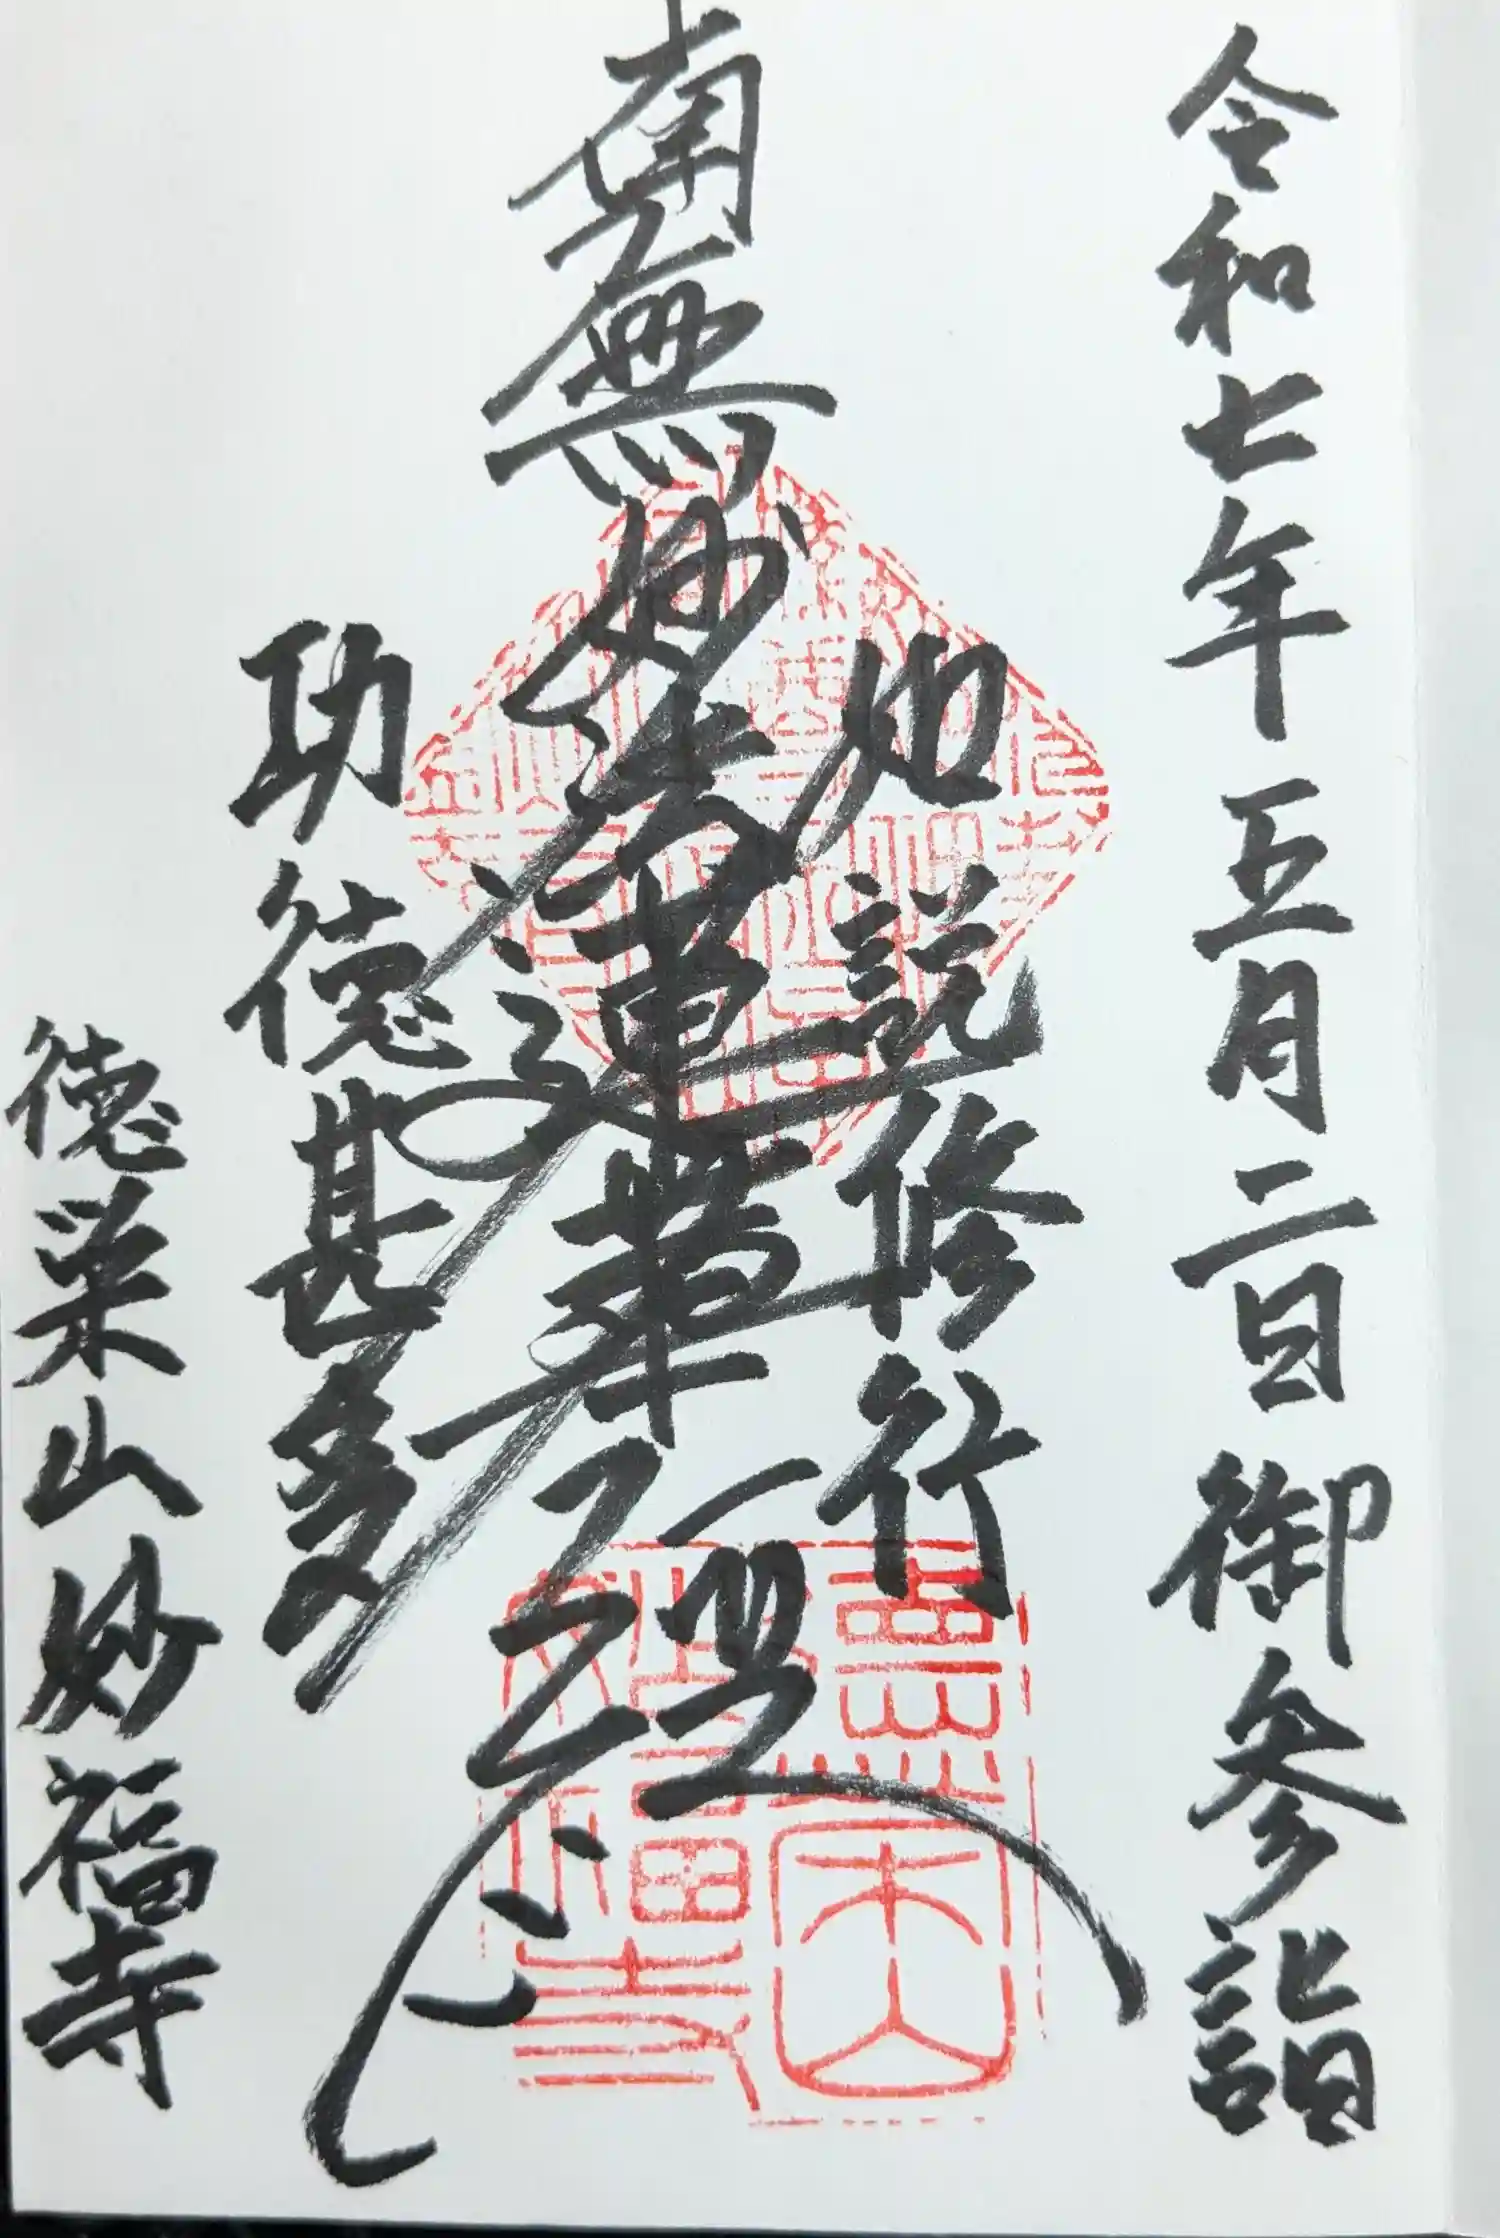 令和七年五月二日御参詣
如説修行
南無妙法蓮華経
功徳甚多
徳栄山妙福寺